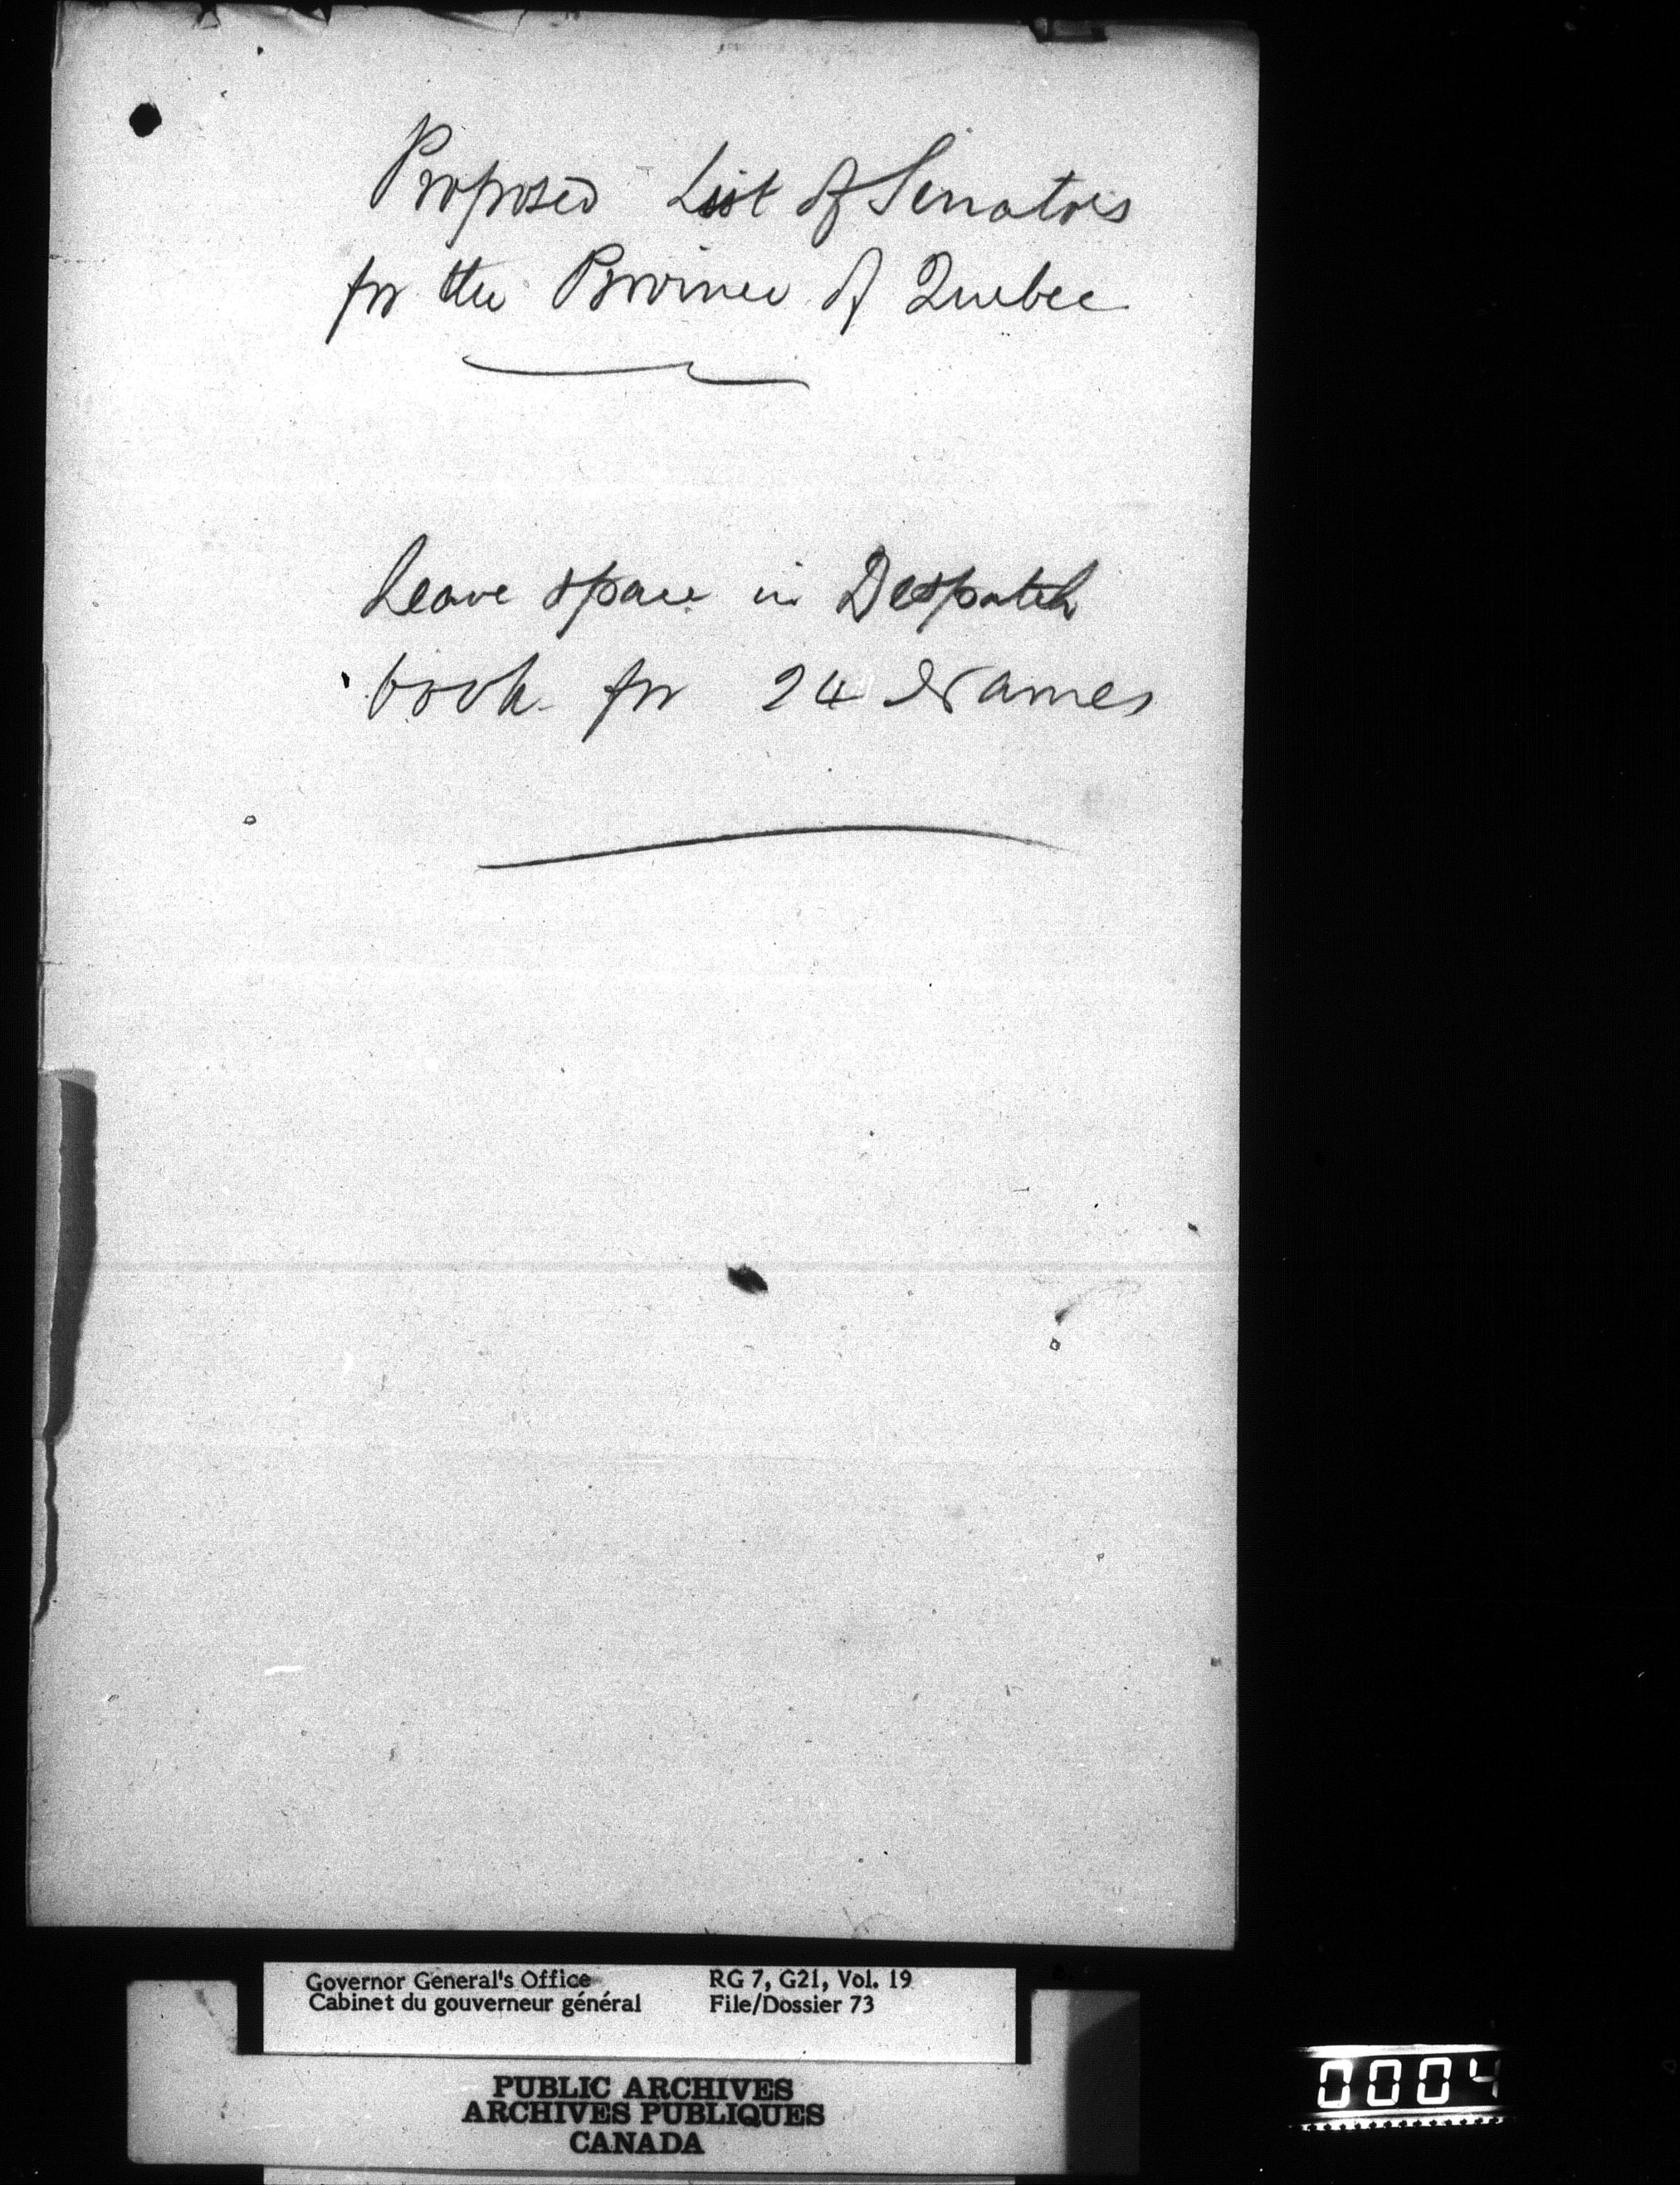 Proposed List of Senators
for the Province of Quebec
Leave space in Despatch
book for 24 Names
Governor General's Office RG 7, G21, Vol. 19
Cabinet du gouverneur général File/Dossier 73
PUBLIC ARCHIVES
ARCHIVES PUBLIQUES
CANADA
0004